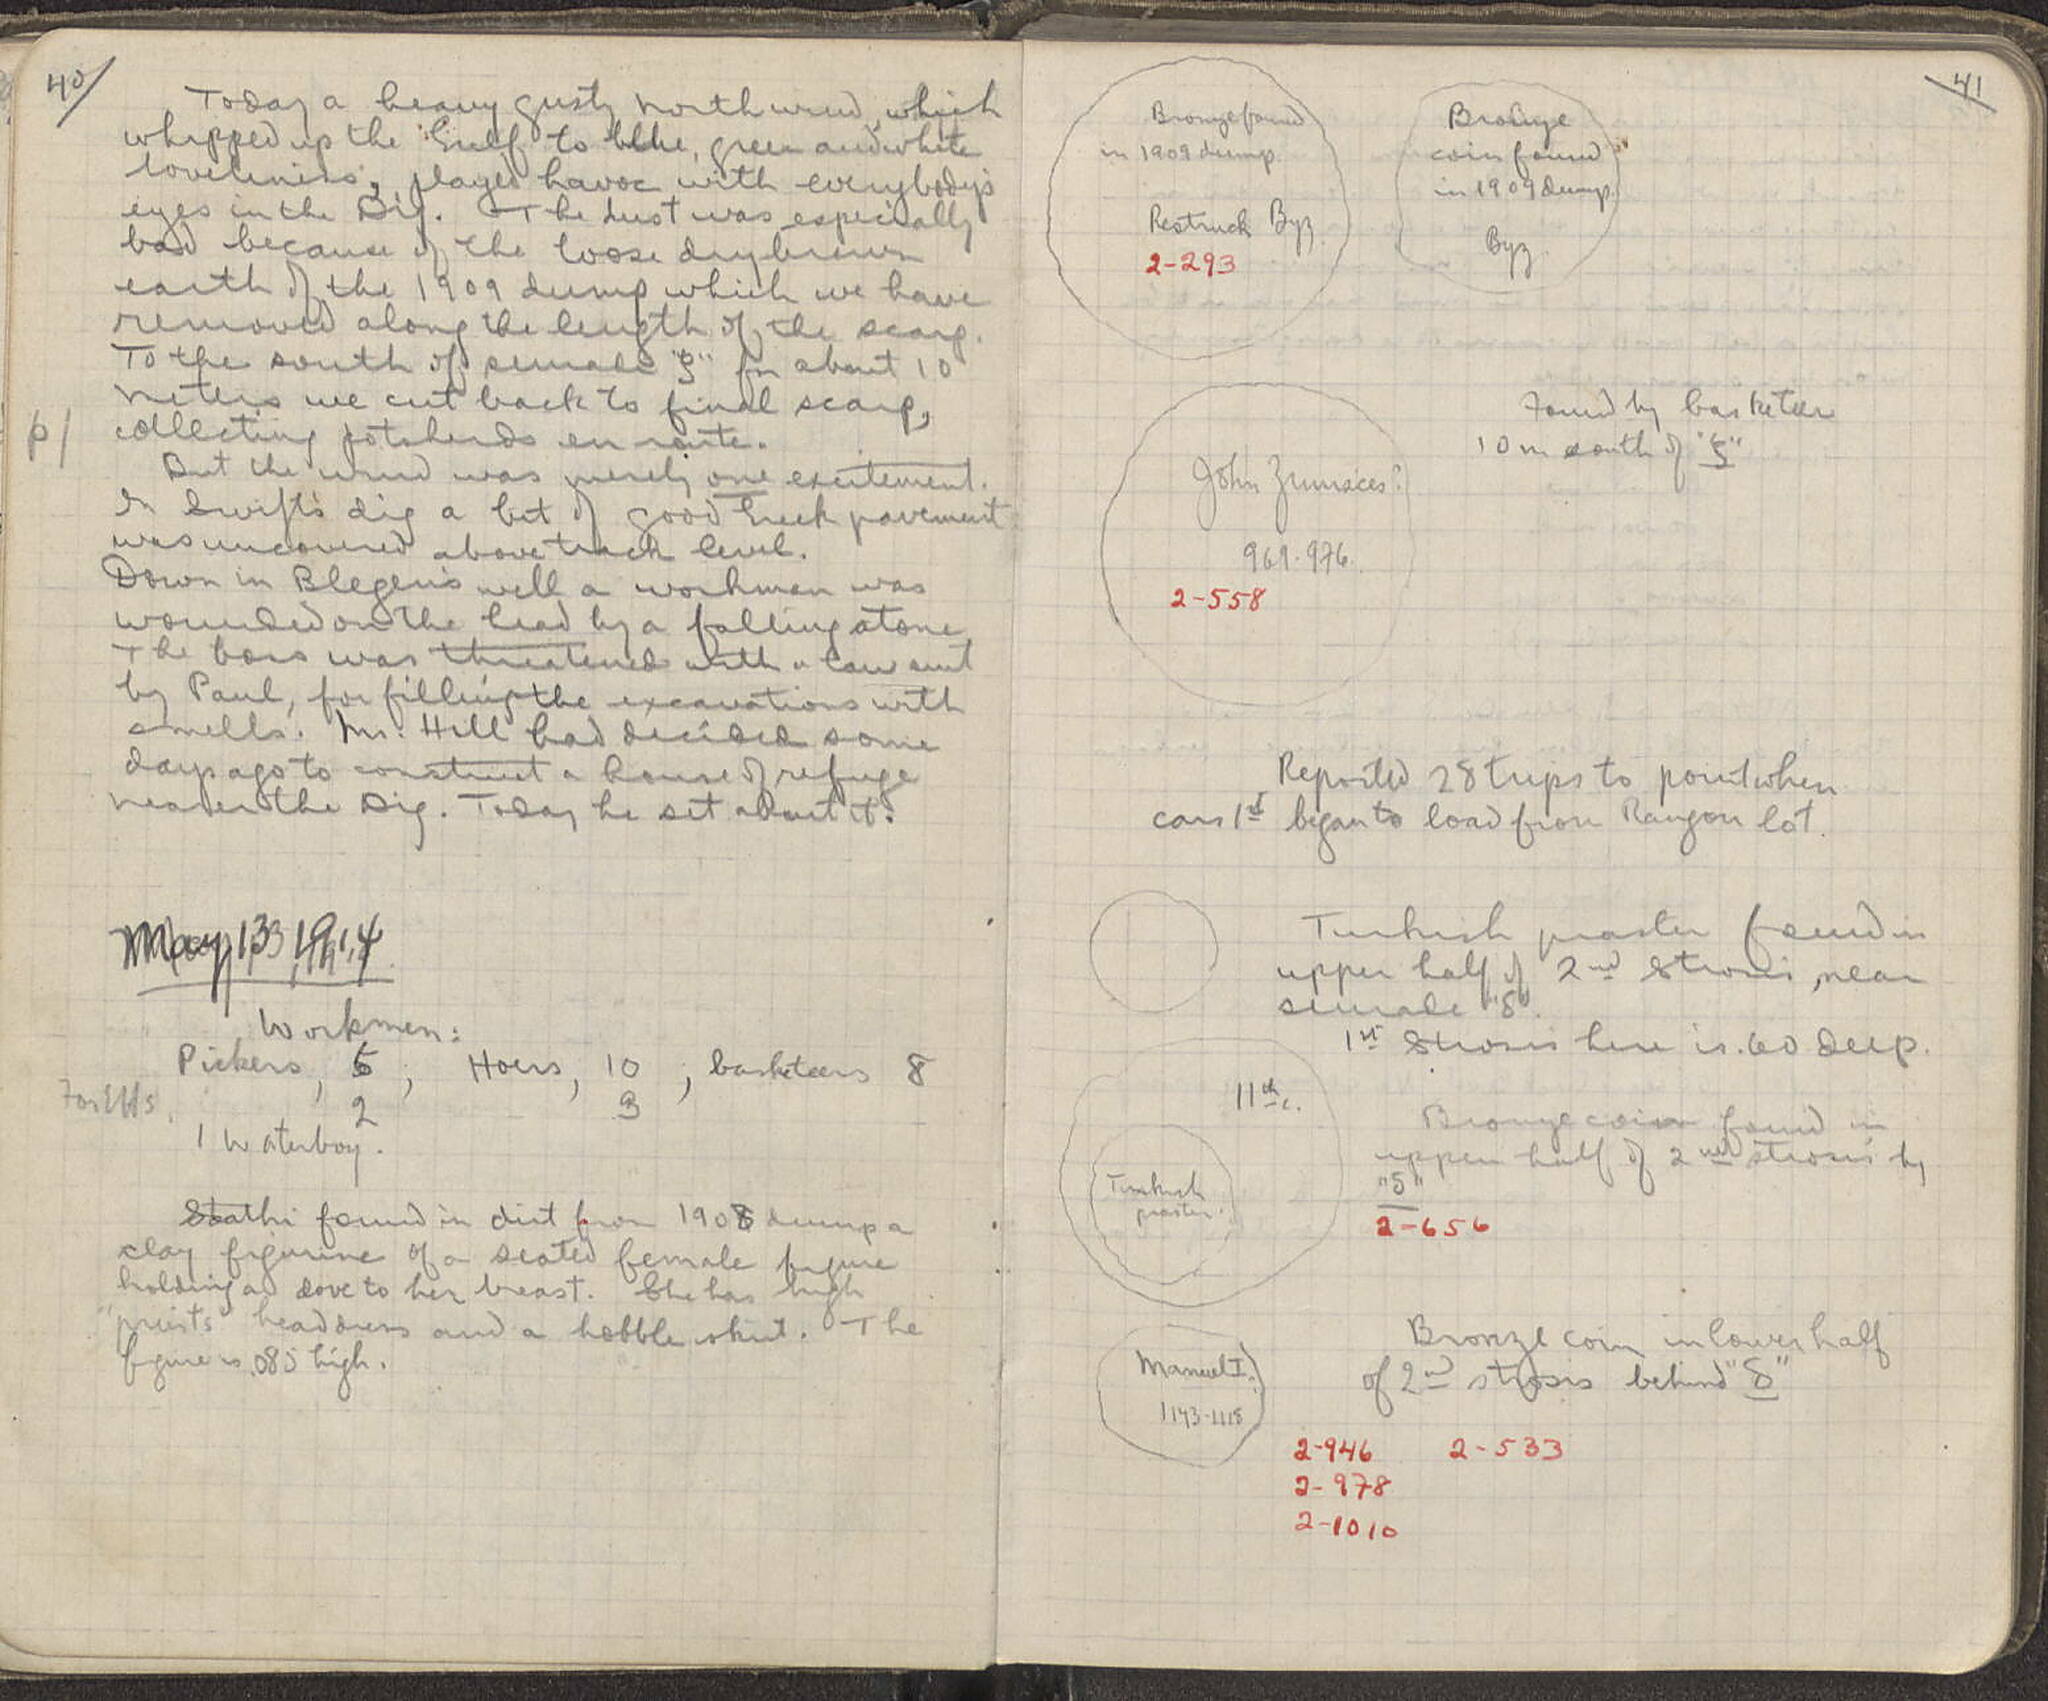 40/
Today a heavy gusty north wind, which
whipped up the Gulf to blue, green and white
loveliness, played havoc with everybody's
eyes in the Dig. The dust was especially
bad because of the loose dry brown
earth of the 1909 dump which we have
removed along the length of the scarp.
To the south of semale "ξ" for about 10
meters we cut back to final scarp,
p/ collecting potsherds en route.
But the wind was merely one excitement.
In Swift's dig a bit of good Greek pavement
was uncovered above track level.
Down in Blegen's well a workman was
wounded on the head by a falling stone.
The boss was threatened with a law suit
by Paul, for filling the excavations with
smells. Mr. Hill had decided some
days ago to construct a house of refuge
nearer the Dig. Today he set about it.
May 13 1914
Workmen:
Pickers, 5; Hoers, 10, basketeers 8
2 3
1 Waterboy.
Stathi found in dirt from 1908 dump a
clay figurine of a seated female figure
holding a dove to her breast. She has high
"priests" headdress and a hobble skirt. The
figure is .085 high.
41
Bronze found
in 1909 dump.
Restruck Byz.
2-293
Bronze
coin found
in 1909 dump.
Byz.
Found by basketeer
10 m south of "ξ"
John Zimisces?
969-976.
2-558
Reported 28 trips to point when
cars 1st began to load from Rangon lot.
Turkish piaster found in
upper half of 2nd Strosis, near
semale "δ".
1st Strosis here is .60 deep.
11th c.
Bronze coin found in
upper half of 2nd strosis by
"δ"
2-656
Turkish
piaster.
Bronze coin in lower half
of 2nd strosis behind "δ"
Manuel I.
1143-1118
2-946 2-533
2-978
2-1010